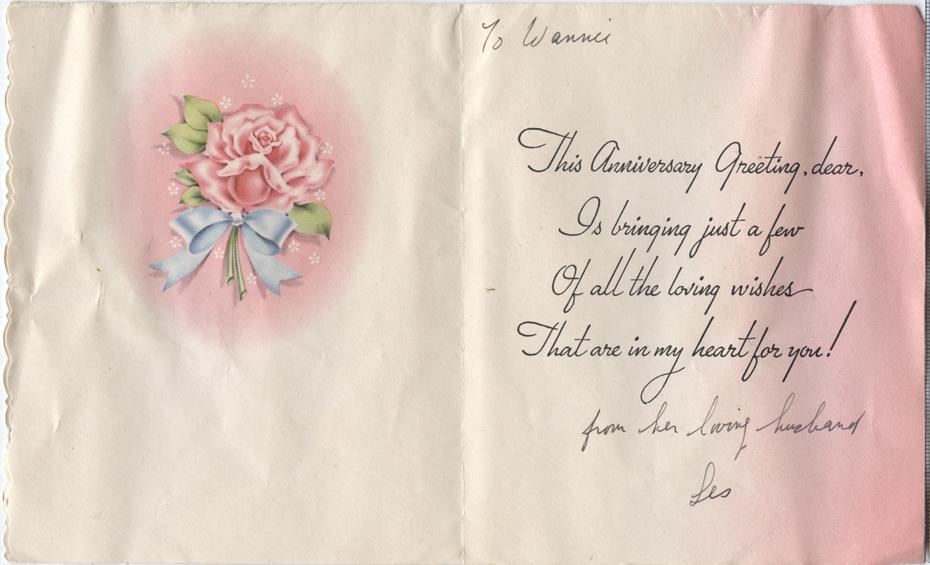 To Wannie
This Anniversary Greeting, dear,
Is bringing just a few
Of all the loving wishes
That are in my heart for you!
from her loving husband
Les